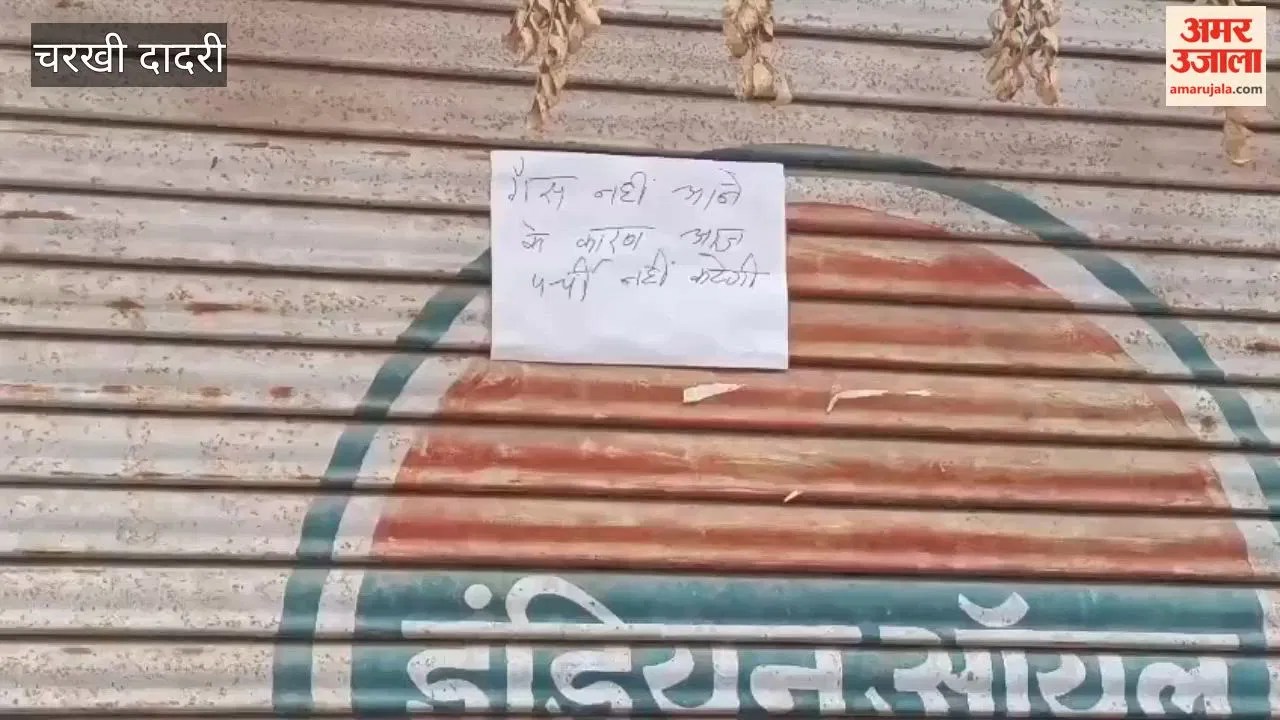 चरखी दादरी
अमर
उजाला
amarujala.com
गैस नहीं आने
के कारण आज
पर्ची नहीं कटेगी
इंडियन ऑयल